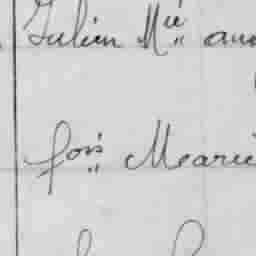 Julien Mie
fois Marie